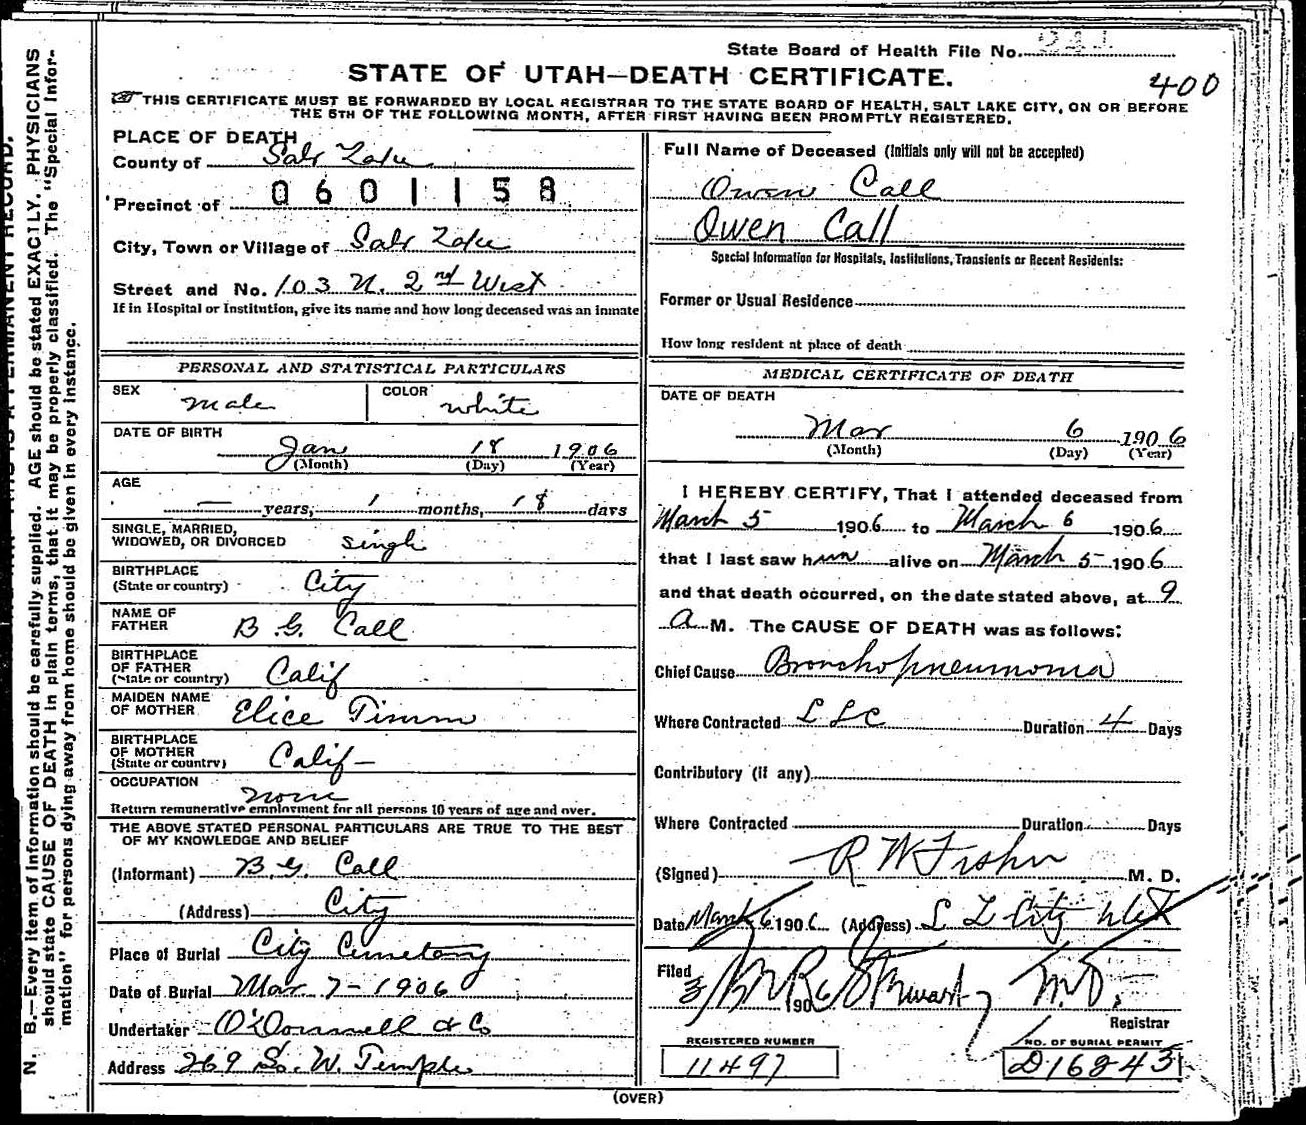 State Board of Health File No. 241
STATE OF UTAH—DEATH CERTIFICATE.
400
THIS CERTIFICATE MUST BE FORWARDED BY LOCAL REGISTRAR TO THE STATE BOARD OF HEALTH, SALT LAKE CITY, ON OR BEFORE
THE 5TH OF THE FOLLOWING MONTH, AFTER FIRST HAVING BEEN PROMPTLY REGISTERED.
PLACE OF DEATH
County of Salt Lake
Precinct of 0601158
City, Town or Village of Salt Lake
Street and No. 103 N. 2nd West
If in Hospital or Institution, give its name and how long deceased was an inmate
PERSONAL AND STATISTICAL PARTICULARS
SEX male COLOR white
DATE OF BIRTH
Jan 18 1906
(Month) (Day) (Year)
AGE
— years, 1 months, 18 days
SINGLE, MARRIED,
WIDOWED, OR DIVORCED single
BIRTHPLACE
(State or country) City
NAME OF
FATHER B G. Call
BIRTHPLACE
OF FATHER
(State or country) Calif
MAIDEN NAME
OF MOTHER Elice Timm
BIRTHPLACE
OF MOTHER
(State or country) Calif—
OCCUPATION none
Return remunerative employment for all persons 10 years of age and over.
THE ABOVE STATED PERSONAL PARTICULARS ARE TRUE TO THE BEST
OF MY KNOWLEDGE AND BELIEF
(Informant) B.G. Call
(Address) City
Place of Burial City Cemetery
Date of Burial Mar 7-1906
Undertaker O'Donnell & Co
Address 269 So. W. Temple
Full Name of Deceased (Initials only will not be accepted)
Owen Call
Owen Call
Special Information for Hospitals, Institutions, Transients or Recent Residents:
Former or Usual Residence
How long resident at place of death
MEDICAL CERTIFICATE OF DEATH
DATE OF DEATH
Mar 6 1906
(Month) (Day) (Year)
I HEREBY CERTIFY, That I attended deceased from
March 5 1906 to March 6 1906
that I last saw him alive on March 5 1906
and that death occurred, on the date stated above, at 9
A M. The CAUSE OF DEATH was as follows:
Chief Cause Bronchopneumonia
Where Contracted S L C Duration 4 Days
Contributory (if any)
Where Contracted Duration Days
(Signed) R W M. D.
Date March 6 1906 (Address) S L City Utah
Filed 3/ 1906 Stewart M.D.
Registrar
REGISTERED NUMBER
11497
NO. OF BURIAL PERMIT
D16243
(OVER)
N. B.—Every item of information should be carefully supplied. AGE should be stated EXACTLY. PHYSICIANS
should state CAUSE OF DEATH in plain terms, that it may be properly classified. The "Special Infor-
mation" for persons dying away from home should be given in every instance.